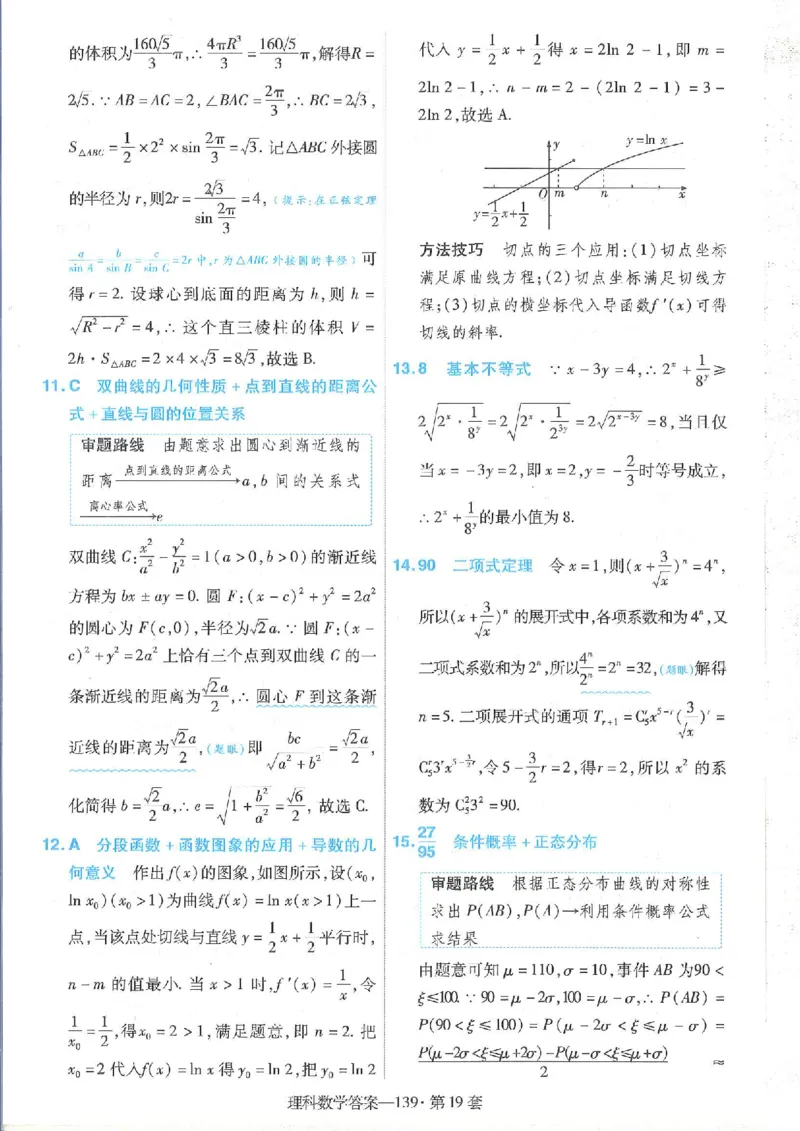 的体积为160√5/3 π,∴ 4πR³/3 = 160√5/3 π,解得R =
2√5. ∵ AB = AC = 2, ∠BAC = 2π/3, ∴ BC = 2√3,
S△ABC = 1/2 × 2² × sin 2π/3 = √3. 记△ABC 外接圆
的半径为 r,则2r = 2√3/(sin 2π/3) = 4,(提示:在正弦定理
a/sin A = b/sin B = c/sin C = 2r 中,r 为△ABC 外接圆的半径)可
得 r = 2. 设球心到底面的距离为 h,则 h =
√(R² − r²) = 4,∴ 这个直三棱柱的体积 V =
2h · S△ABC = 2 × 4 × √3 = 8√3,故选 B.
11.C 双曲线的几何性质 + 点到直线的距离公
式 + 直线与圆的位置关系
审题路线 由题意求出圆心到渐近线的
距离 —点到直线的距离公式→ a,b 间的关系式
—离心率公式→ e
双曲线 C: x²/a² − y²/b² = 1(a > 0,b > 0)的渐近线
方程为 bx ± ay = 0. 圆 F:(x − c)² + y² = 2a²
的圆心为 F(c,0),半径为√2a. ∵ 圆 F:(x −
c)² + y² = 2a² 上恰有三个点到双曲线 C 的一
条渐近线的距离为 √2a/2,∴ 圆心 F 到这条渐
近线的距离为 √2a/2,(题眼)即 bc/√(a² + b²) = √2a/2,
化简得 b = √2/2 a,∴ e = √(1 + b²/a²) = √6/2, 故选 C.
12.A 分段函数 + 函数图象的应用 + 导数的几
何意义 作出 f(x)的图象,如图所示,设(x₀,
ln x₀)(x₀ > 1)为曲线 f(x) = ln x(x > 1)上一
点,当该点处切线与直线 y = 1/2 x + 1/2 平行时,
n − m 的值最小. 当 x > 1 时,f′(x) = 1/x,令
1/x₀ = 1/2,得x₀ = 2 > 1,满足题意,即 n = 2. 把
x₀ = 2 代入f(x) = ln x 得 y₀ = ln 2,把 y₀ = ln 2
代入 y = 1/2 x + 1/2 得 x = 2ln 2 − 1,即 m =
2ln 2 − 1,∴ n − m = 2 − (2ln 2 − 1) = 3 −
2ln 2,故选 A.
y
y=ln x
O m n x
y=1/2 x+1/2
方法技巧 切点的三个应用:(1)切点坐标
满足原曲线方程;(2)切点坐标满足切线方
程;(3)切点的横坐标代入导函数f′(x)可得
切线的斜率.
13.8 基本不等式 ∵ x − 3y = 4,∴ 2ˣ + 1/8ʸ ≥
2√(2ˣ · 1/8ʸ) = 2√(2ˣ · 1/2³ʸ) = 2√(2ˣ⁻³ʸ) = 8,当且仅
当 x = −3y = 2,即 x = 2,y = −2/3时等号成立,
∴ 2ˣ + 1/8ʸ的最小值为 8.
14.90 二项式定理 令 x = 1,则(x + 3/√x)ⁿ = 4ⁿ,
所以(x + 3/√x)ⁿ 的展开式中,各项系数和为 4ⁿ,又
二项式系数和为 2ⁿ,所以4ⁿ/2ⁿ = 2ⁿ = 32,(题眼)解得
n = 5. 二项展开式的通项 Tᵣ₊₁ = C₅ʳx⁵⁻ʳ(3/√x)ʳ =
C₅ʳ3ʳx^(5−3/2 r),令 5 − 3/2 r = 2,得 r = 2,所以 x² 的系
数为 C₅²3² = 90.
15.27/95 条件概率 + 正态分布
审题路线 根据正态分布曲线的对称性
求出 P(AB),P(A)→利用条件概率公式
求结果
由题意可知 μ = 110,σ = 10,事件 AB 为90 <
ξ ≤ 100. ∵ 90 = μ − 2σ,100 = μ − σ,∴ P(AB) =
P(90 < ξ ≤ 100) = P(μ − 2σ < ξ ≤ μ − σ) =
[P(μ−2σ<ξ≤μ+2σ)−P(μ−σ<ξ≤μ+σ)]/2 ≈
理科数学答案—139 · 第 19 套